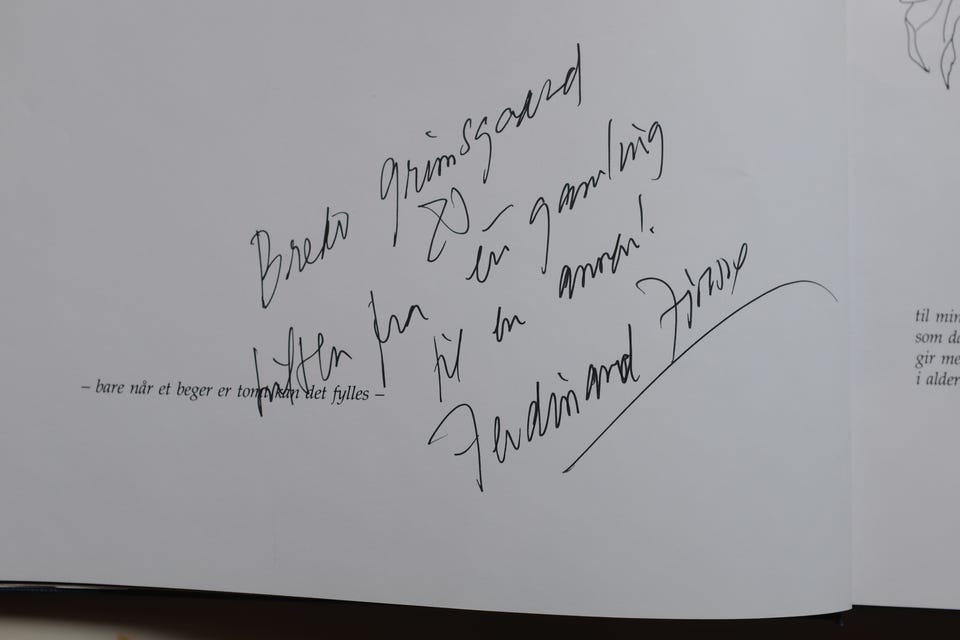 Bredo Grimsgaard
70
hilsen fra en gamling
til en annen!
Ferdinand Finne
– bare når et beger er tomt kan det fylles –
til min
som da
gir me
i alder